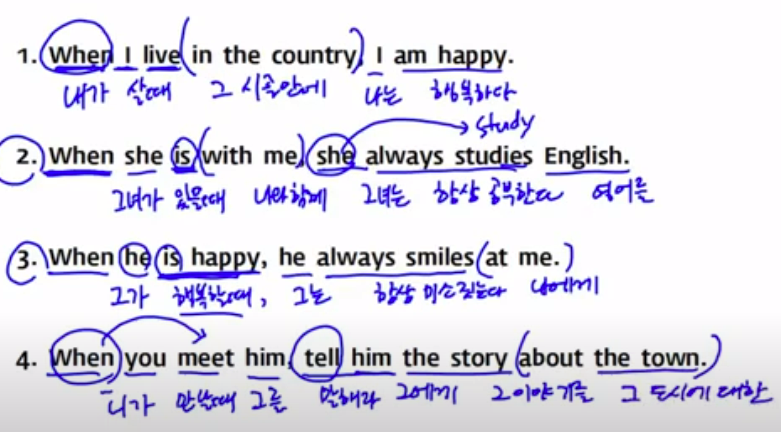 1. When I live (in the country), I am happy.
내가 살때 그 시골안에 나는 행복하다
study
2. When she is (with me), she always studies English.
그녀가 있을때 나와함께 그녀는 항상 공부한다 영어를
3. When he is happy, he always smiles (at me.)
그가 행복할때, 그는 항상 미소짓는다 나에게
4. When you meet him, tell him the story (about the town.)
니가 만날때 그를 말해라 그에게 그 이야기를 그 도시에 대한